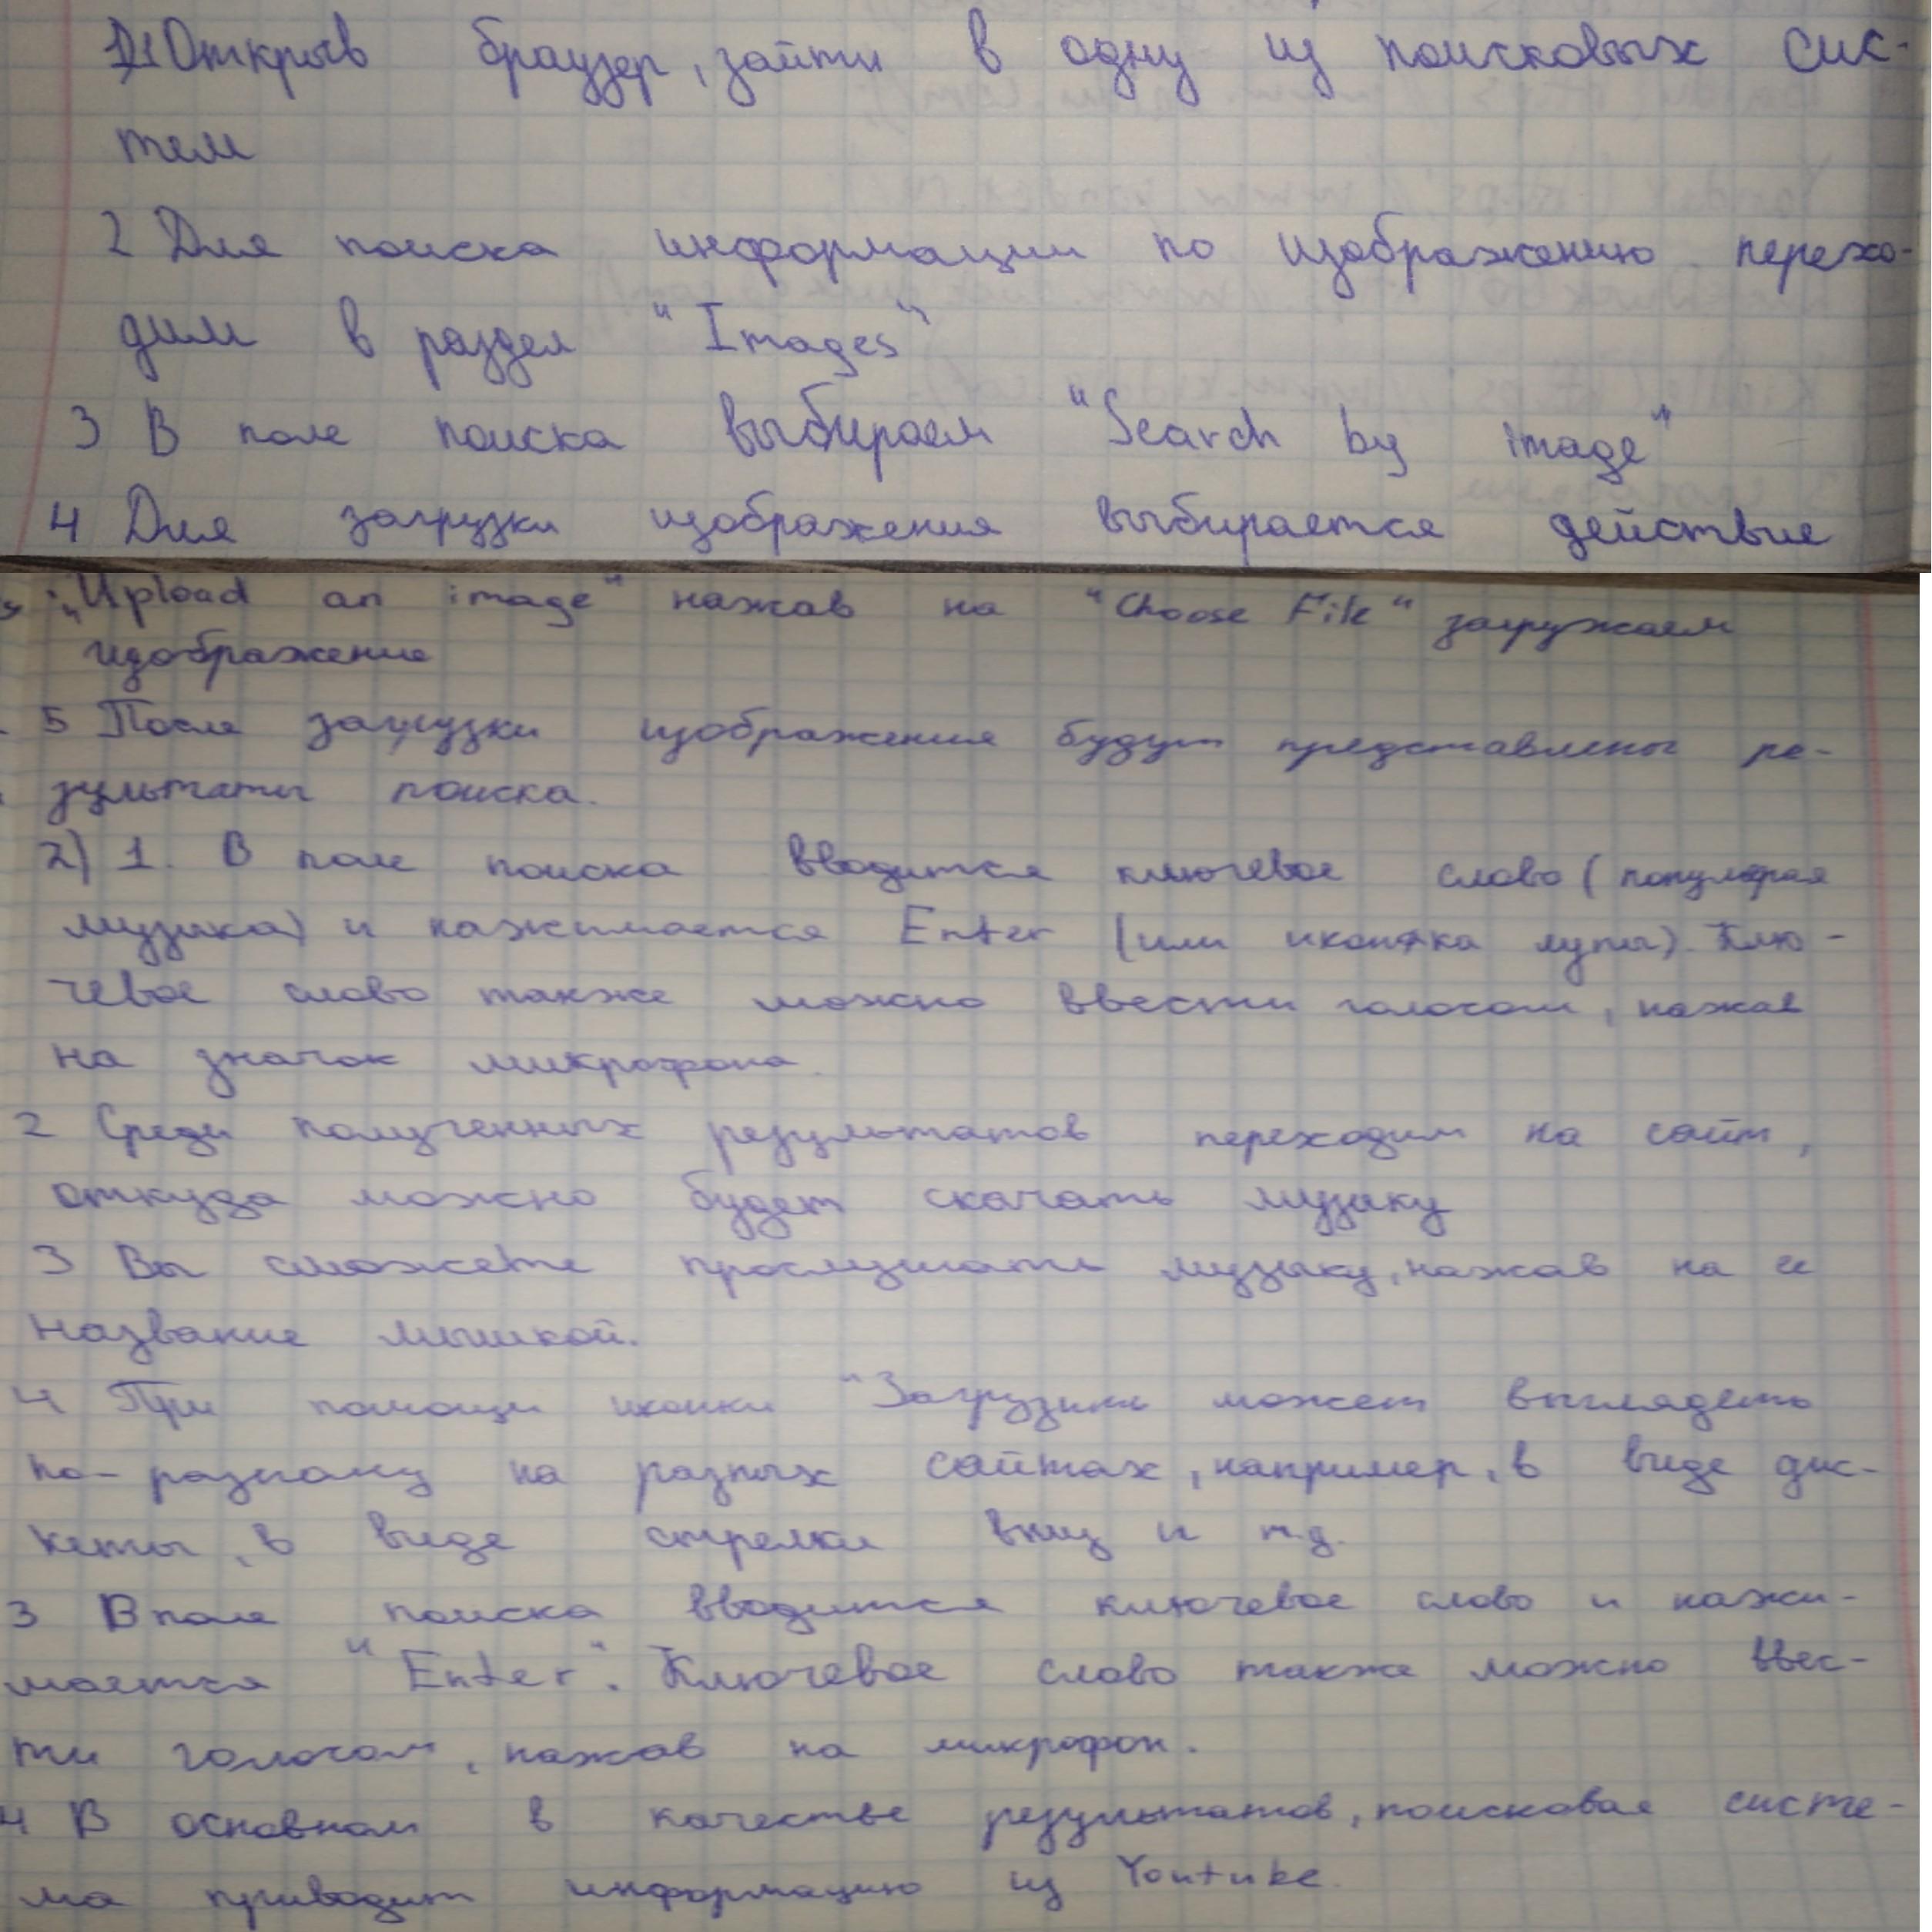 1)1 Открыв браузер, зайти в одну из поисковых сис-
тем
2 Для поиска информации по изображению перехо-
дим в раздел "Images"
3 В поле поиска выбираем "Search by image"
4 Для загрузки изображения выбирается действие
"Upload an image" нажав на "Choose File" загружаем
изображение
5 После загрузки изображения будут представлены ре-
зультаты поиска.
2) 1. В поле поиска вводится ключевое слово (популярая
музыка) и нажимается Enter (или иконка лупы). Клю-
чевое слово также можно ввести голосом, нажав
на значок микрофона.
2 Среди полученных результатов переходим на сайт,
откуда можно будет скачать музыку
3 Вы сможете прослушать музыку, нажав на ее
название мышкой.
4 При помощи иконки "Загрузить может выглядеть
по-разному на разных сайтах, например, в виде дис-
кеты, в виде стрелки вниз и т.д.
3 В поле поиска вводится ключевое слово и нажи-
мается "Enter". Ключевое слово также можно ввес-
ти голосом, нажав на микрофон.
4 В основном в качестве результатов, поисковая систе-
ма приводит информацию из Youtube.